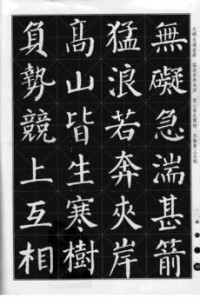 無礙急湍甚箭
猛浪若奔夾岸
高山皆生寒樹
負勢競上互相